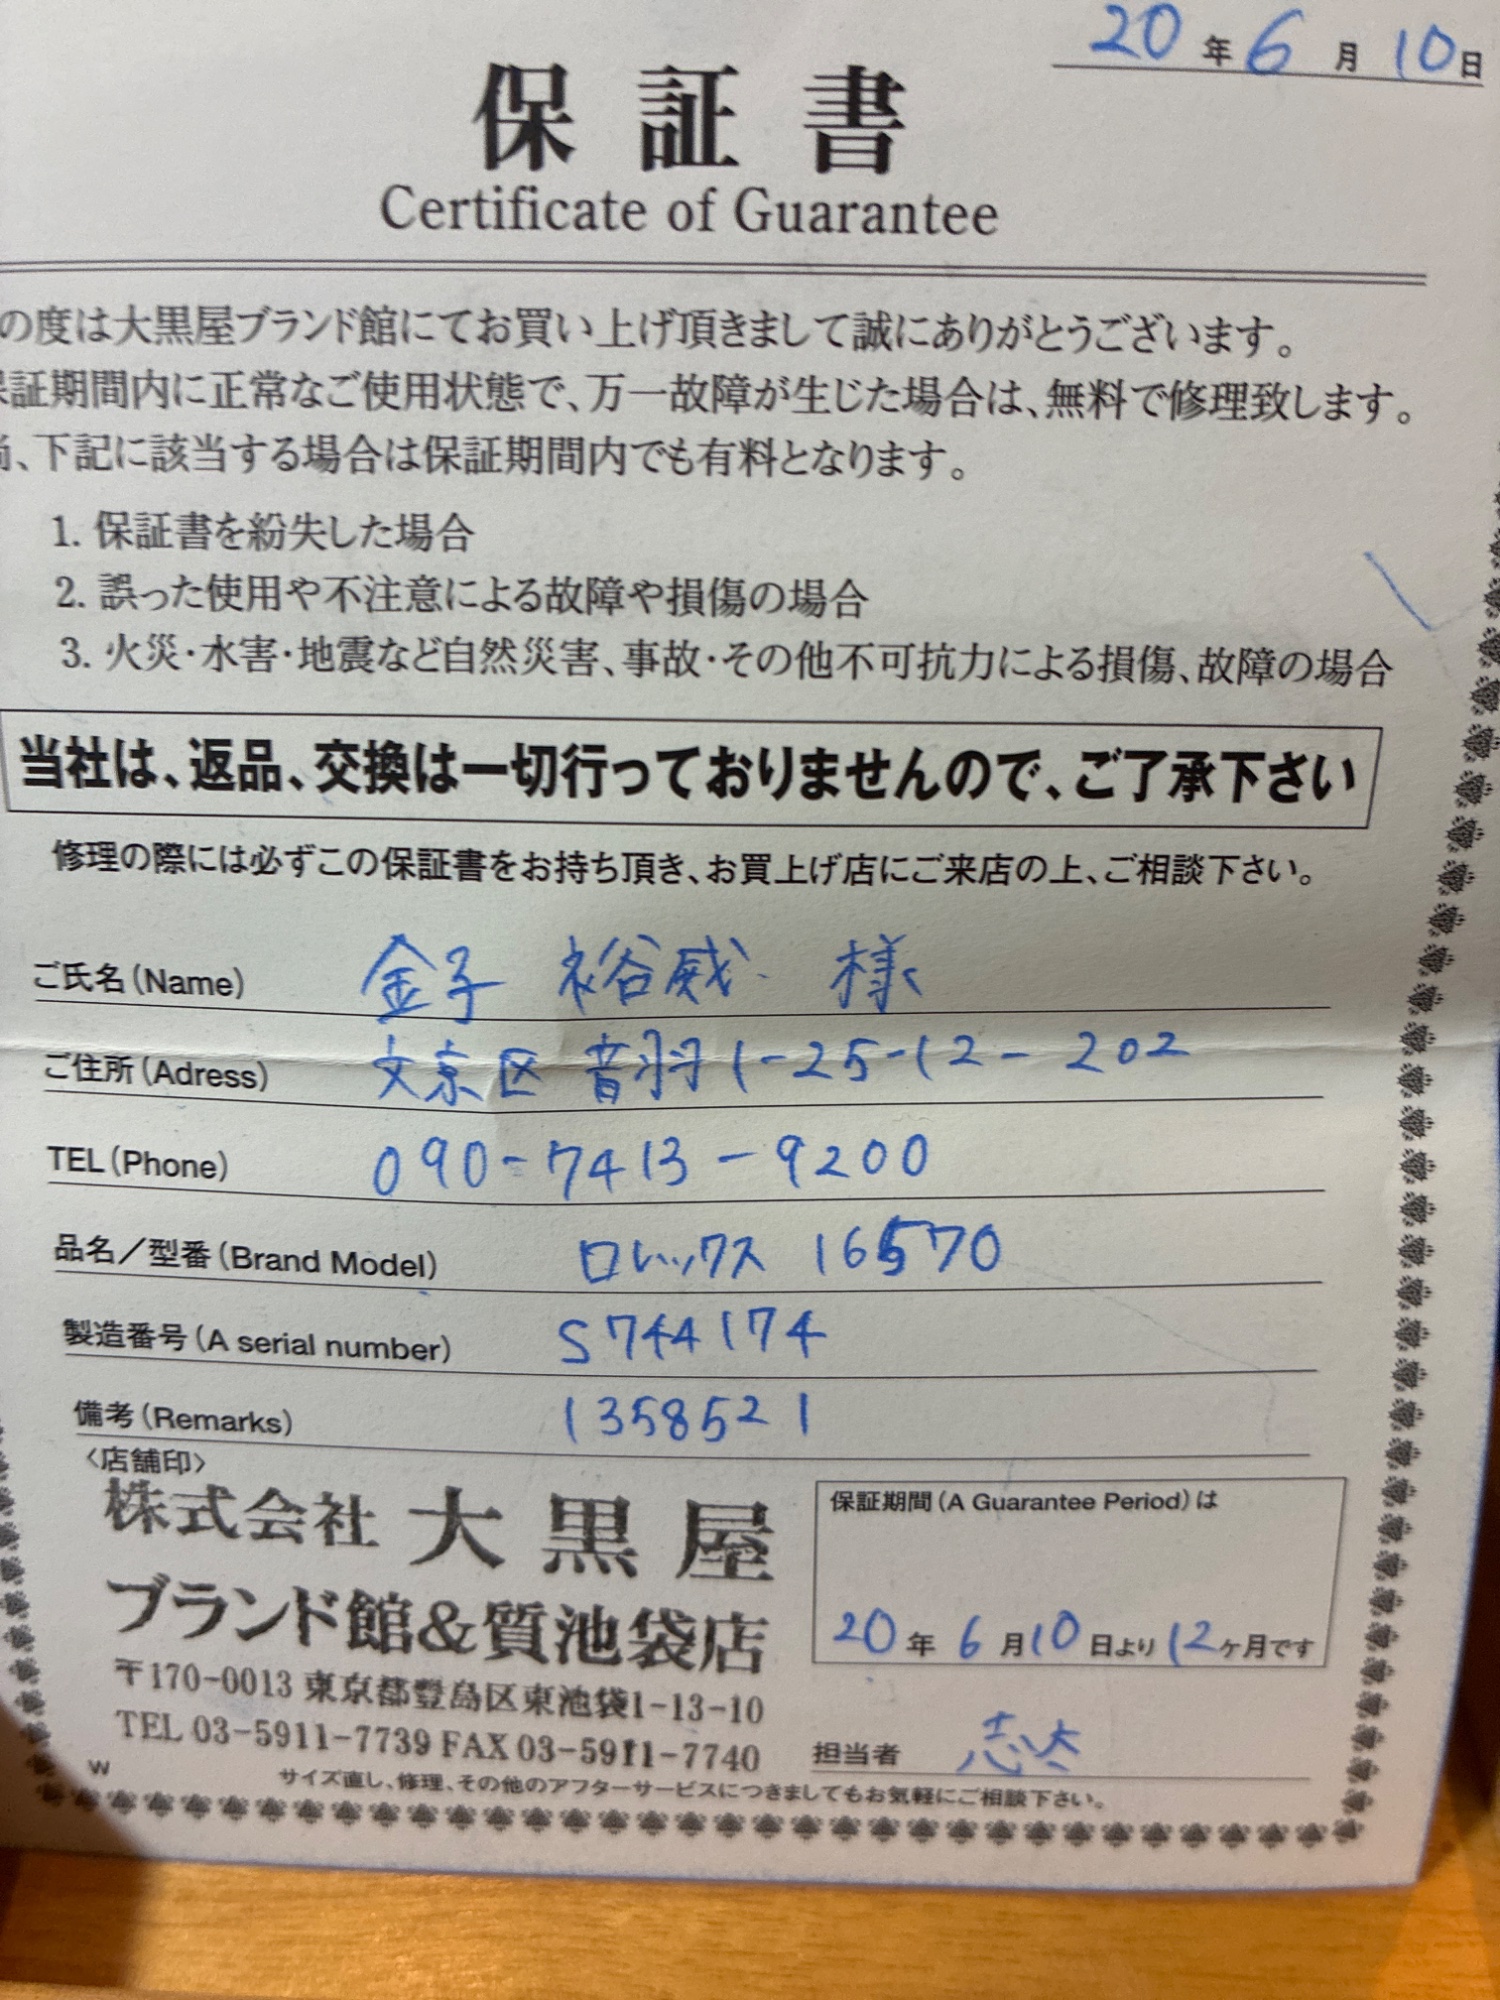 20年6月10日
保証書
Certificate of Guarantee
の度は大黒屋ブランド館にてお買い上げ頂きまして誠にありがとうございます。
保証期間内に正常なご使用状態で、万一故障が生じた場合は、無料で修理致します。
尚、下記に該当する場合は保証期間内でも有料となります。
1. 保証書を紛失した場合
2. 誤った使用や不注意による故障や損傷の場合
3. 火災・水害・地震など自然災害、事故・その他不可抗力による損傷、故障の場合
当社は、返品、交換は一切行っておりませんので、ご了承下さい
修理の際には必ずこの保証書をお持ち頂き、お買上げ店にご来店の上、ご相談下さい。
ご氏名(Name) 金子 裕威 様
ご住所(Adress) 文京区 音羽1-25-12-202
TEL(Phone) 090-7413-9200
品名/型番(Brand Model) ロレックス 16570
製造番号(A serial number) S744174
備考(Remarks) 1358521
〈店舗印〉
株式会社 大黒屋
ブランド館&質池袋店
〒170-0013 東京都豊島区東池袋1-13-10
TEL 03-5911-7739 FAX 03-5911-7740
保証期間(A Guarantee Period)は
20年6月10日より12ヶ月です
担当者
W
サイズ直し、修理、その他のアフターサービスにつきましてもお気軽にご相談下さい。